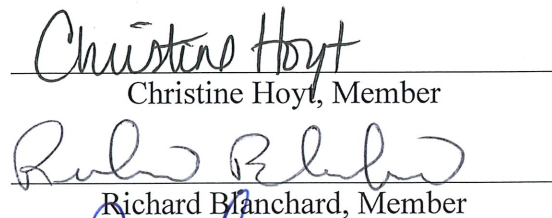 Christine Hoyt
Christine Hoyt, Member
Richard Blanchard
Richard Blanchard, Member